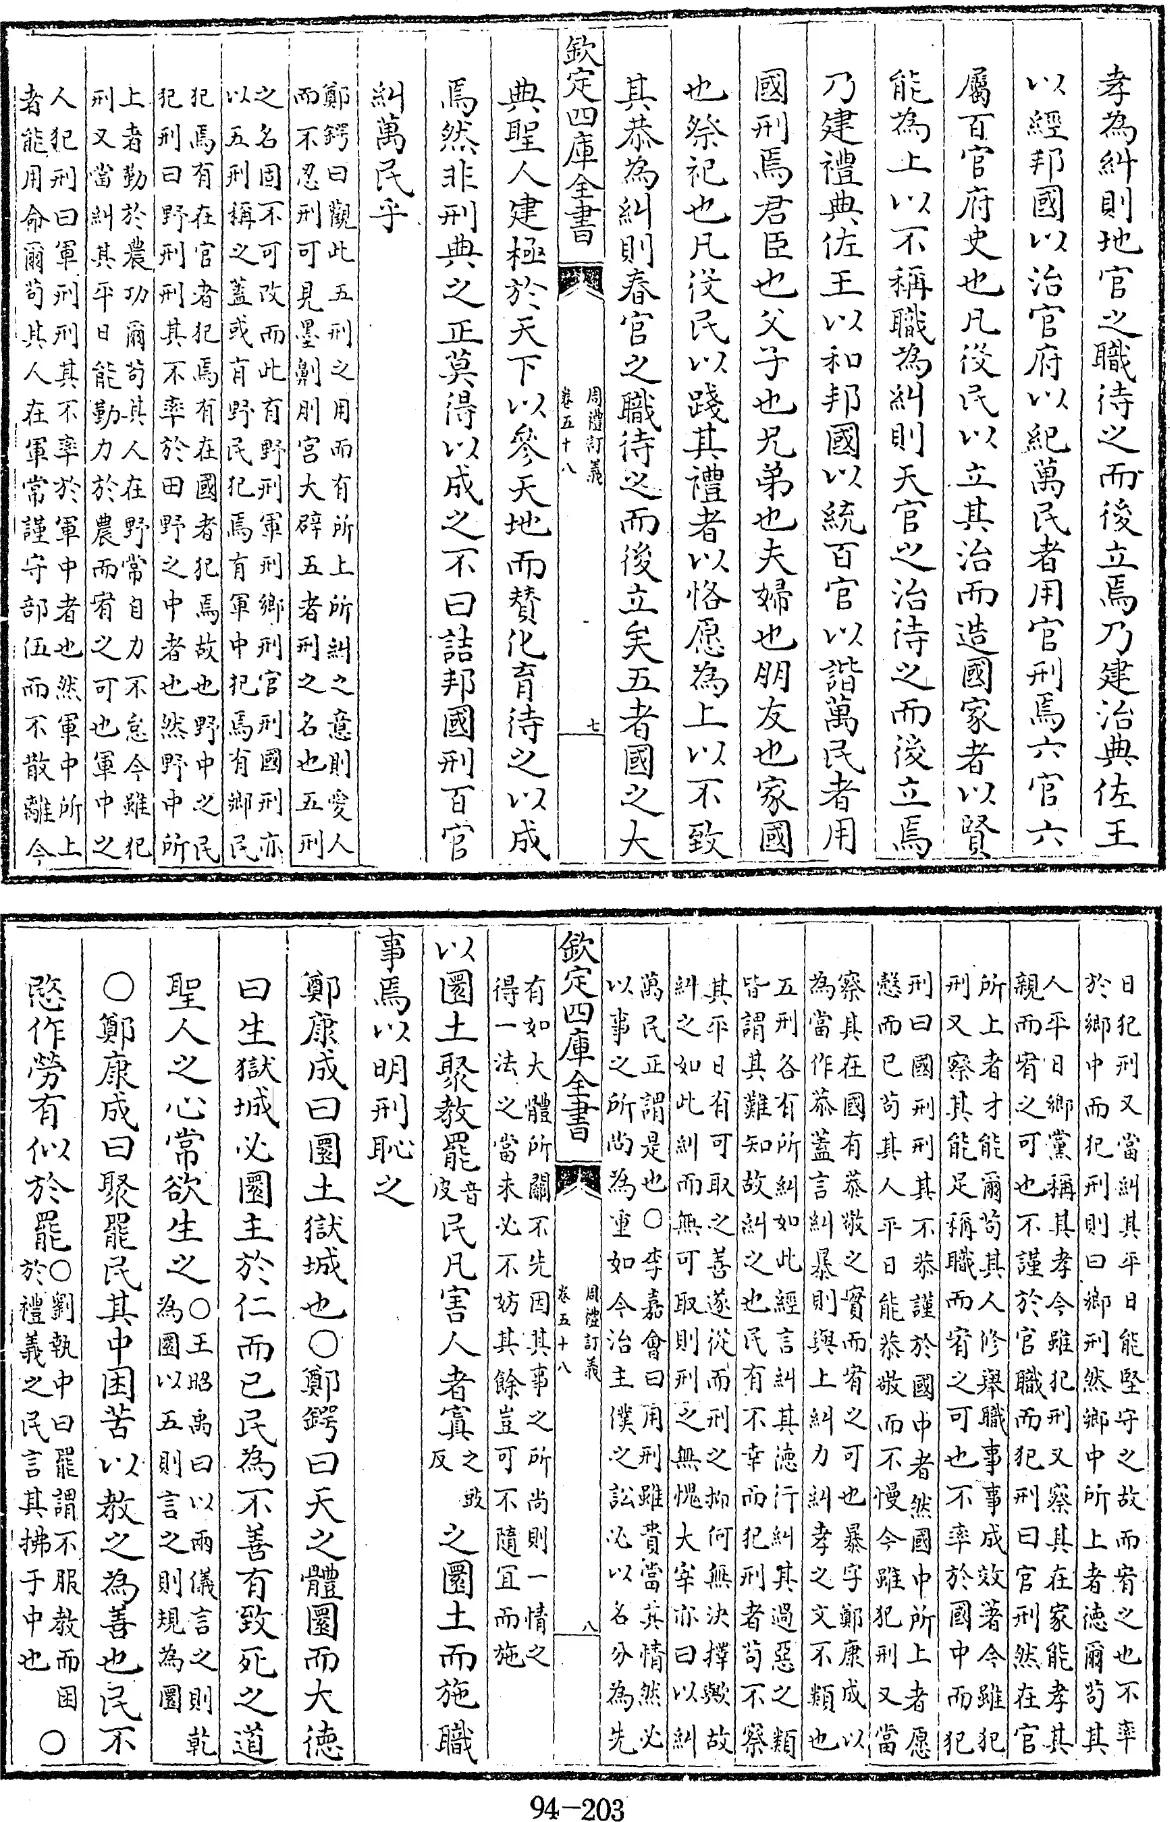 孝為糾則地官之職待之而後立焉乃建治典佐王
以經邦國以治官府以紀萬民者用官刑焉六官六
屬百官府史也凡役民以立其治而造國家者以賢
能為上以不稱職為糾則天官之治待之而後立焉
乃建禮典佐王以和邦國以統百官以諧萬民者用
國刑焉君臣也父子也兄弟也夫婦也朋友也家國
也祭祀也凡役民以踐其禮者以恪愿為上以不致
其恭為糾則春官之職待之而後立矣五者國之大
欽定四庫全書
周禮訂義
卷五十八
七
典聖人建極於天下以參天地而贊化育待之以成
焉然非刑典之正莫得以成之不曰詰邦國刑百官
糾萬民乎
鄭鍔曰觀此五刑之用而有所上所糾之意則愛人
而不忍刑可見墨劓刖宮大辟五者刑之名也五刑
之名固不可改而此有野刑軍刑鄉刑官刑國刑亦
以五刑稱之蓋或有野民犯焉有軍中犯焉有鄉民
犯焉有在官者犯焉有在國者犯焉故也野中之民
犯刑曰野刑刑其不率於田野之中者也然野中所
上者勤於農功爾苟其人在野常自力不怠今雖犯
刑又當糾其平日能勤力於農而宥之可也軍中之
人犯刑曰軍刑刑其不率於軍中者也然軍中所上
者能用命爾苟其人在軍常謹守部伍而不散離今
日犯刑又當糾其平日能堅守之故而宥之也不率
於鄉中而犯刑則曰鄉刑然鄉中所上者德爾苟其
人平日鄉黨稱其孝今雖犯刑又察其在家能孝其
親而宥之可也不謹於官職而犯刑曰官刑然在官
所上者才能爾苟其人修舉職事事成效著今雖犯
刑又察其能足稱職而宥之可也不率於國中而犯
刑曰國刑刑其不恭謹於國中者然國中所上者愿
愨而已苟其人平日能恭敬而不慢今雖犯刑又當
察其在國有恭敬之實而宥之可也暴字鄭康成以
為當作恭蓋言糾暴則與上糾力糾孝之文不類也
五刑各有所糾如此經言糾其德行糾其過惡之類
皆謂其難知故糾之也民有不幸而犯刑者苟不察
其平日有可取之善遂從而刑之抑何無決擇歟故
糾之如此糾而無可取則刑之無愧大宰亦曰以糾
萬民正謂是也〇李嘉會曰用刑雖貴當其情然必
以事之所尚為重如今治主僕之訟必以名分為先
欽定四庫全書
周禮訂義
卷五十八
八
有如大體所關不先因其事之所尚則一情之
得一法之當未必不妨其餘豈可不隨宜而施
以圜土聚教罷音皮民凡害人者寘之致反之圜土而施職
事焉以明刑恥之
鄭康成曰圜土獄城也〇鄭鍔曰天之體圜而大德
曰生獄城必圜主於仁而已民為不善有致死之道
聖人之心常欲生之〇王昭禹曰以兩儀言之則乾為圜以五則言之則規為圜
〇鄭康成曰聚罷民其中困苦以教之為善也民不
愍作勞有似於罷〇劉執中曰罷謂不服教而困於禮義之民言其拂于中也〇
94-203